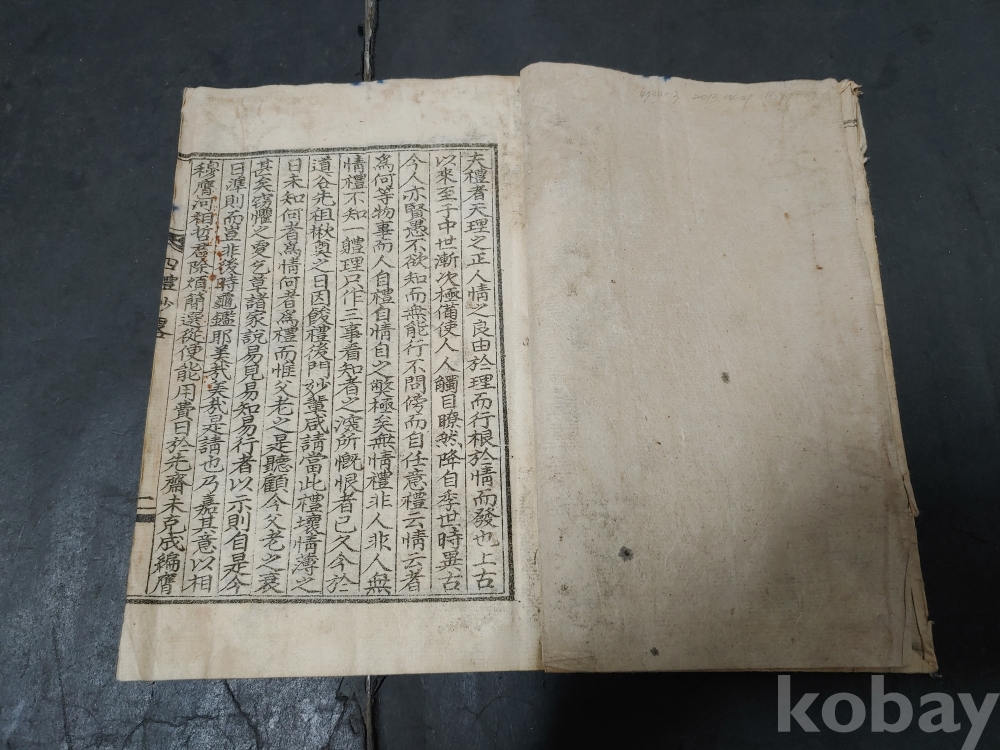 夫禮者天理之正人情之良由於理而行根於情而發也上古
以來至于中世漸次極備使人人觸目瞭然降自季世時異古
今人亦賢愚不欲知而無能行不問傍而自任意禮云情云者
爲何等物事而人自禮自情自之敝極矣無情禮非人非人無
情禮不知一軆理只作三事看知者之深所慨恨者已久今於
道谷先祖楸奠之日因餕禮後門妙輩咸請當此禮壞情薄之
日未知何者爲情何者爲禮而惟父老之是聽顧今父老之衰
甚矣竊懼之爰乞章諸家說易見易知易行者以示則自是今
日準則而豈非後時龜鑑耶美哉美哉是請也乃嘉其意以相
穆膺河相哲君除煩蕳選從便能用費日於先齋未克成編膺
四禮抄畧
二
2013
kobay